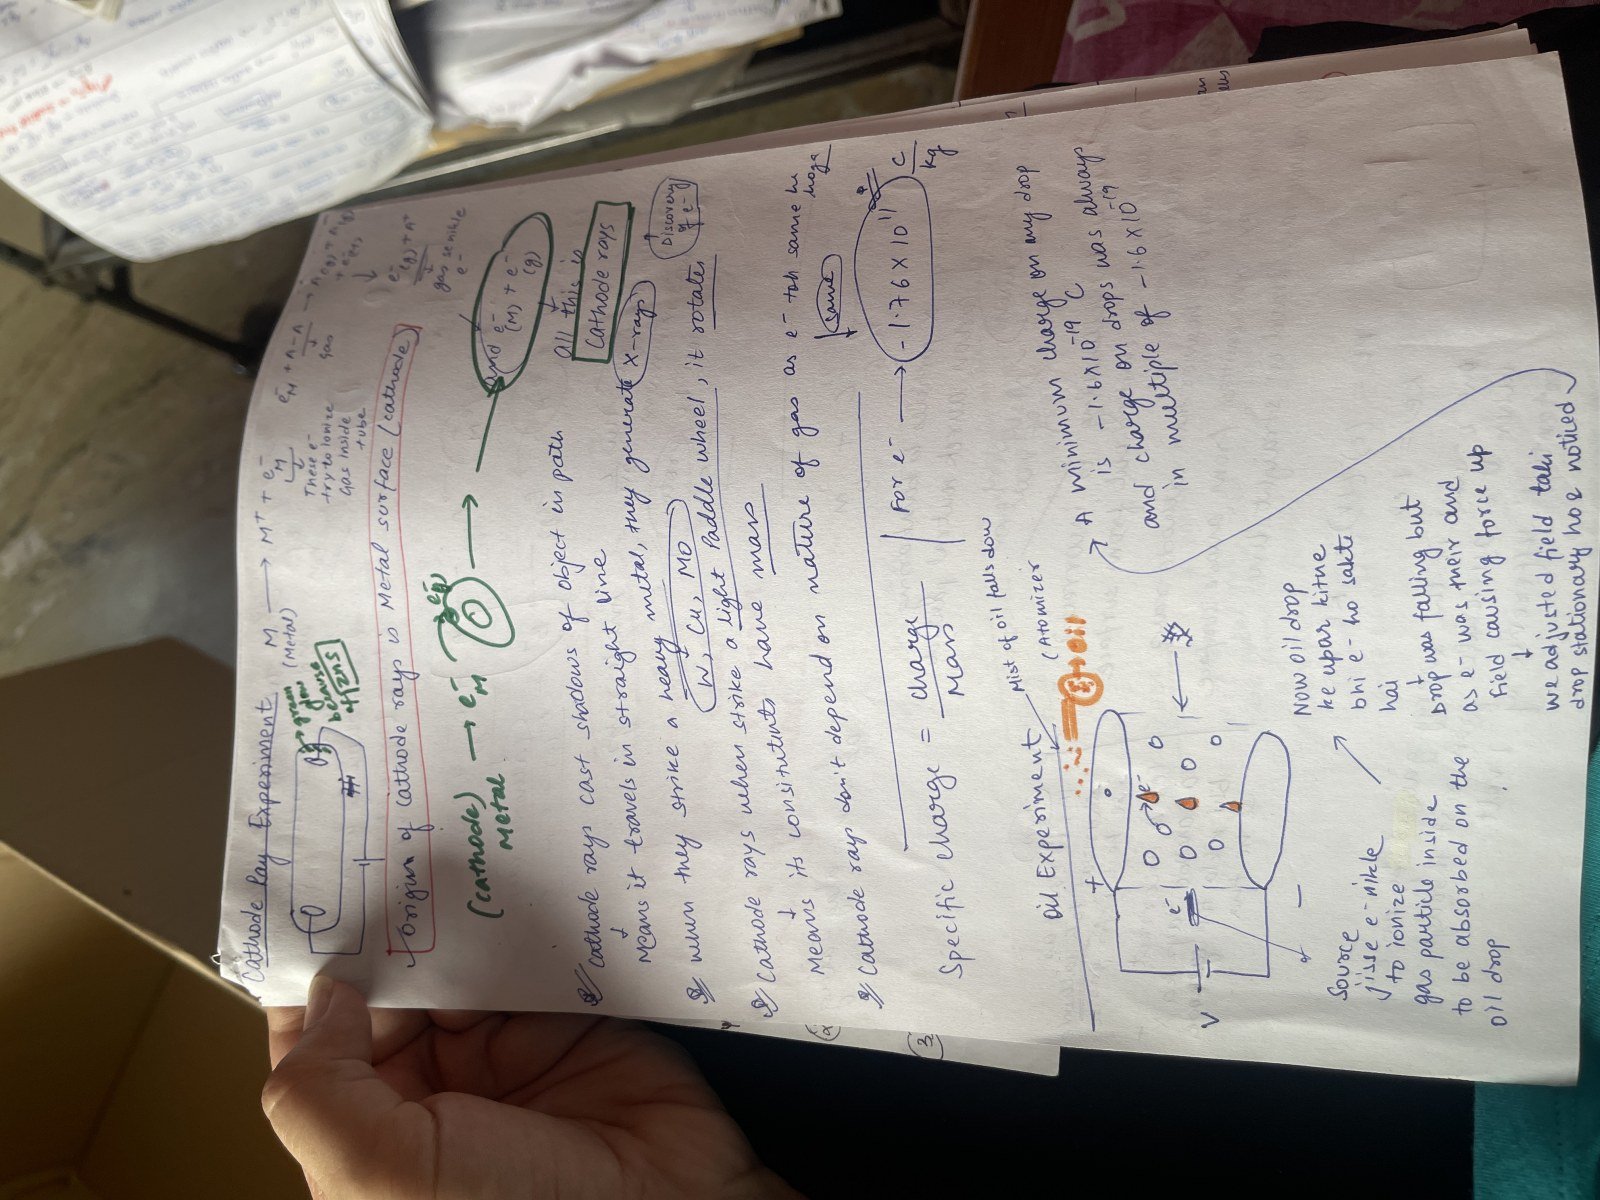 Cathode Ray Experiment
M ⟶ M⁺ + e⁻M
(Metal)
These e⁻
try to ionize
gas inside
tube
e⁻M + A-A ⟶
gas
gas se nikle
e⁻
green
glow
because
of ZnS
Origin of Cathode rays is Metal surface (cathode)
(cathode) → e⁻M
Metal
and e⁻(M) + e⁻(g)
all this is
Cathode rays
Cathode rays cast shadows of object in path
Means it travels in straight line
when they strike a heavy metal, they generate X-rays
W, Cu, Mo
Discovery
of e⁻
Cathode rays when strike a light Paddle wheel, it rotates
Means its consitutents have mass
Cathode rays don't depend on nature of gas as e⁻ toh same hi
hoga
same
Specific charge = charge
Mass
For e⁻ ⟶ -1.76 X 10¹¹ C
kg
Oil Experiment
Mist of oil falls down
(Atomizer
oil
+
e⁻
e⁻
V
−
A minimum charge on any drop
is -1.6X10⁻¹⁹ C
and charge on drops was always
in multiple of -1.6 X 10⁻¹⁹
Source
jisse e⁻ nikle
to ionize
gas particle inside
to be absorbed on the
oil drop
Now oil drop
ke upar kitne
bhi e⁻ ho sakte
hai
Drop was falling but
as e⁻ was their and
field causing force up
we adjusted field taki
drop stationary ho & noticed